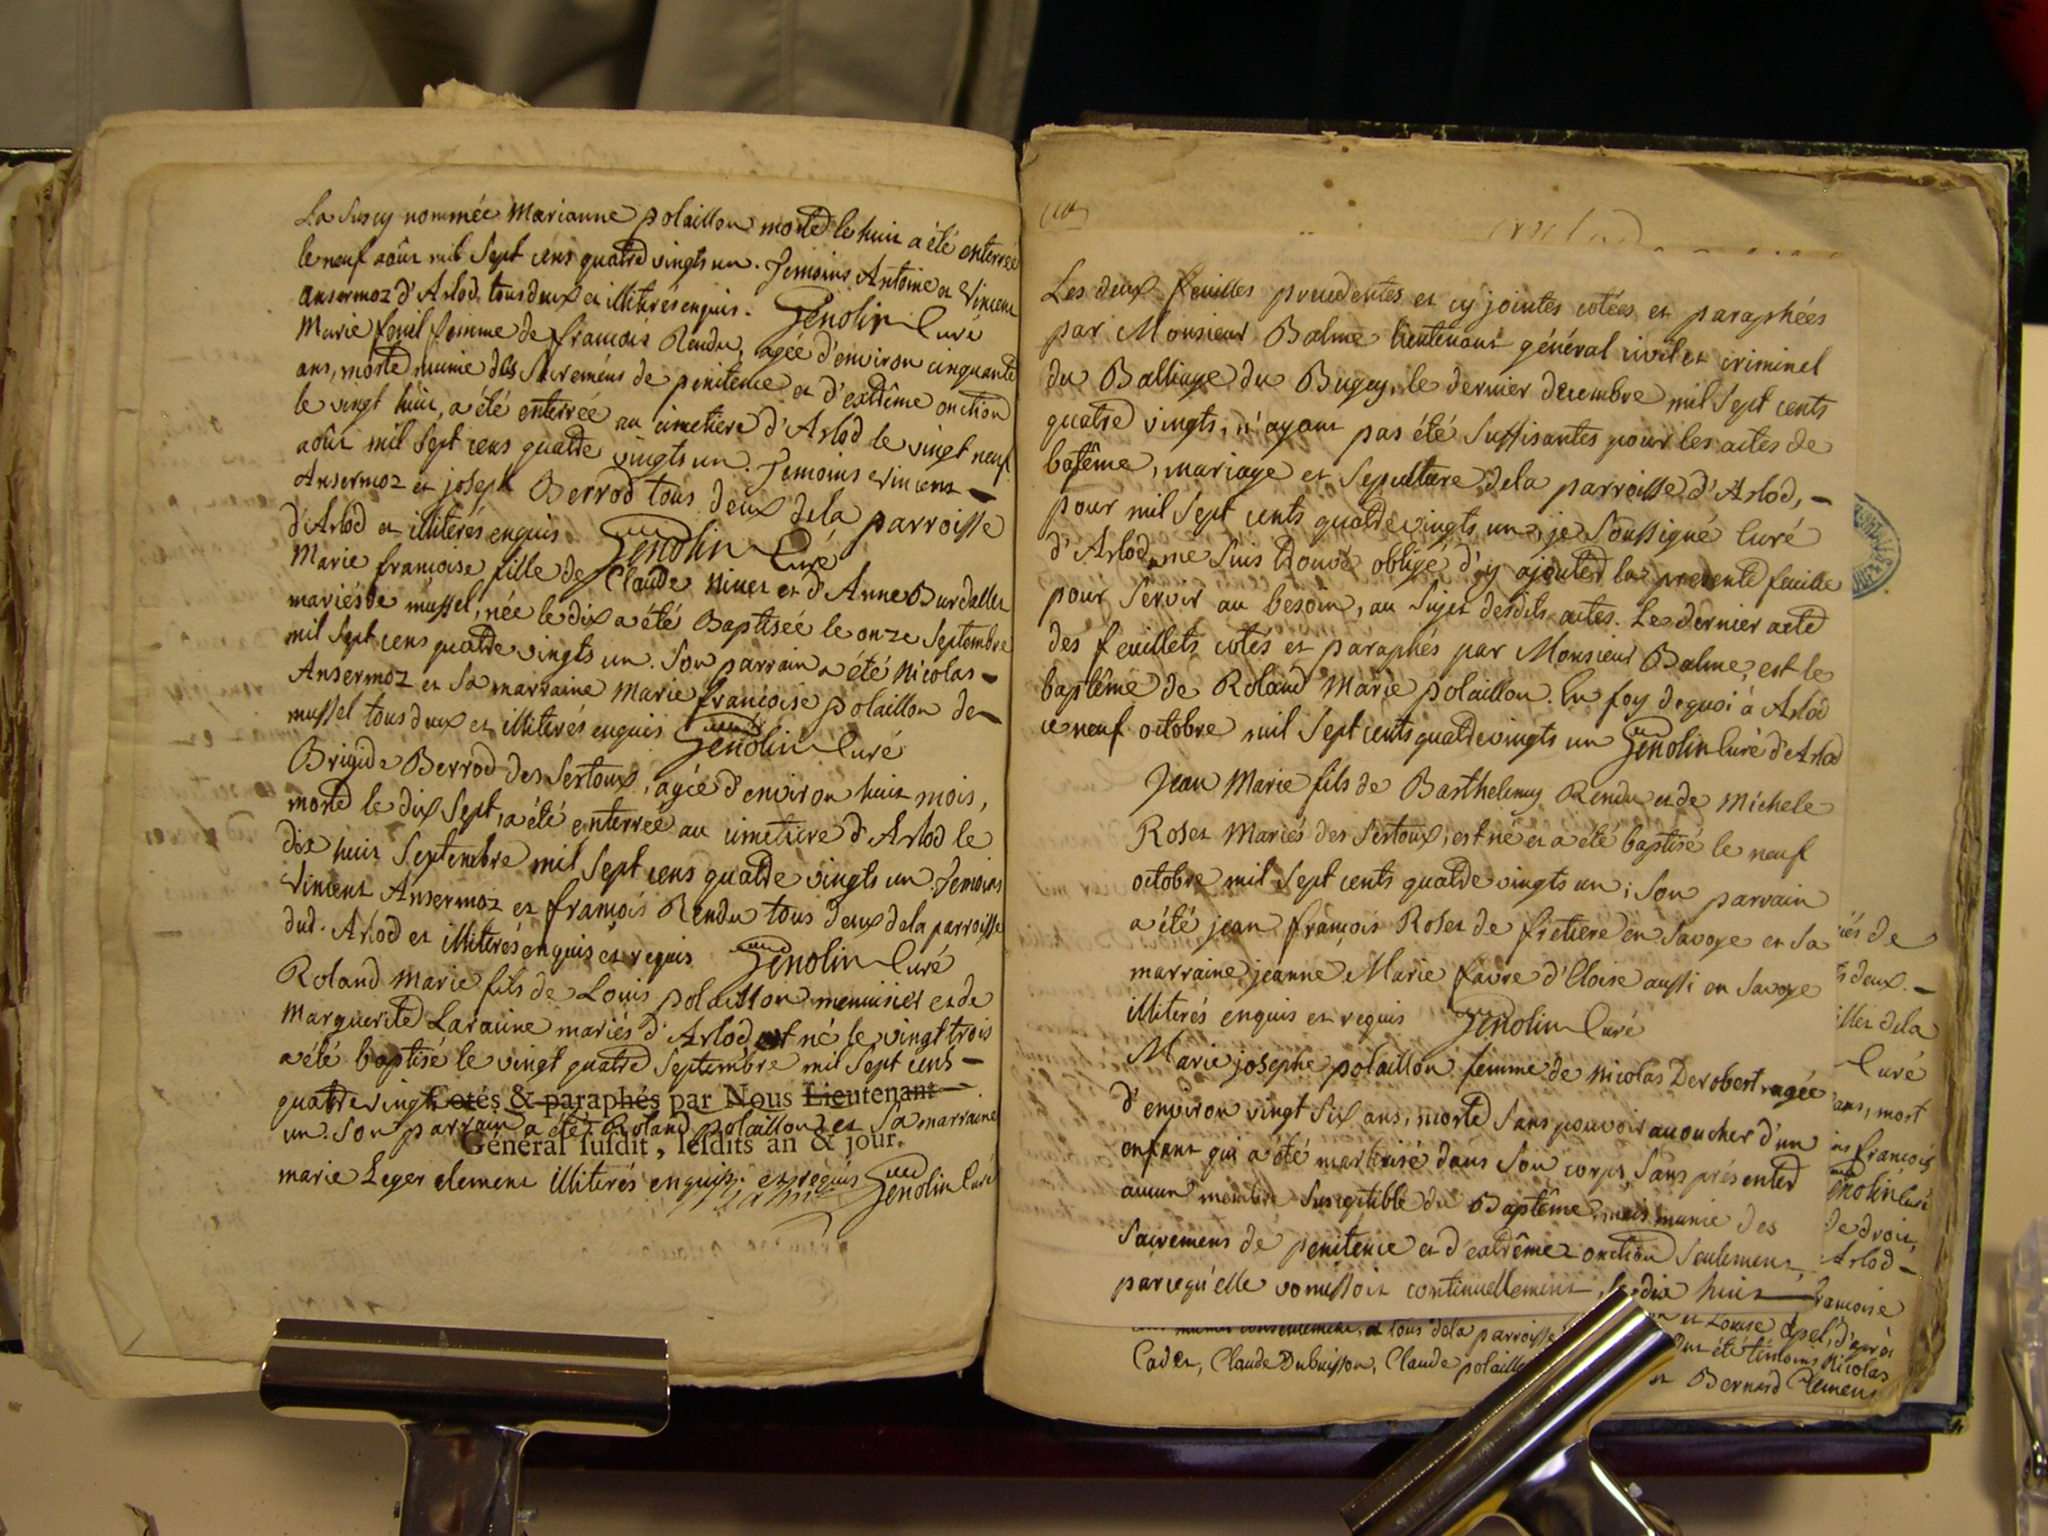 La Susey nommée Marianne polaillon morte le huit a été enterrée
le neuf août mil Sept cens quatre vingts un. Temoins Antoine et Vincent
Ansermoz d'Arlod tous deux et illiterés enquis. Genolin Curé
Marie fonil femme de francois Rendu, agée d'environ cinquante
ans, morte munie des Sacremens de penitence et d'extrême onction
le vingt huit, a été enterrée au cimetiere d'Arlod le vingt neuf
août mil Sept cens quatre vingts un. Temoins Vincent
Ansermoz et joseph Berrod tous deux dela parroisse
d'Arlod et illiterés enquis Genolin Curé
Marie francoise fille de Claude Ninet et d'Anne Burdallet
mariés de mussel, née le dix a été Baptisée le onze Septembre
mil Sept cens quatre vingts un. Son parrain a été Nicolas
Ansermoz et Sa marraine Marie francoise polaillon de
mussel tous deux et illiterés enquis Genolin Curé
Brigide Berrod des Sertoux, agée d'environ huit mois,
morte le dix Sept, a été enterrée au cimetiere d'Arlod le
dix huit Septembre mil Sept cens quatre vingts un. Temoins
Vincent Ansermoz et francois Rendu tous deux dela parroisse
dud. Arlod et illiterés enquis et requis Genolin Curé
Roland Marie fils de Louis polaillon menuisier et de
Marguerite Laraine mariés d'Arlod est né le vingt trois
a été baptisé le vingt quatre Septembre mil Sept cens
quatre vingt
Cotés & paraphés par Nous Lieutenant
un. Son parrain a été Roland polaillon et Sa marraine
Général susdit, lesdits an & jour.
marie Leger clement illiterés enquis et requis Genolin Curé
Les deux feuilles precedentes et cy jointes cotées et paraphées
par Monsieur Balme lieutenant général civil et criminel
du Balliage du Bugey, le dernier decembre mil Sept cents
quatre vingts, n'ayant pas été Suffisantes pour les actes de
batême, mariage et Sepulture dela parroisse d'Arlod,
pour mil Sept cents quatre vingts un, je Soussigné Curé
d'Arlod me Suis trouvé obligé d'y ajouter la presente feuille
pour Servir au besoin, au Sujet desdits actes. Le dernier acte
des feuillets cotés et paraphés par Monsieur Balme, est le
baptême de Roland Marie polaillon. En foy de quoi à Arlod
ce neuf octobre mil Sept cents quatre vingts un Genolin Curé d'Arlod
Jean Marie fils de Barthelemy Rendu et de Michele
Roset Mariés des Sertoux, est né et a été baptisé le neuf
octobre mil Sept cents quatre vingts un; Son parrain
a été jean francois Roset de fretiere en Savoye et Sa
marraine jeanne Marie favre d'Eloise aussi en Savoye
illiterés enquis et requis Genolin Curé
Marie josephe polaillon femme de Nicolas Derobert agée
d'environ vingt Six ans, morte Sans pouvoir accoucher d'un
enfant qui a été martirisé dans Son corps, Sans présenter
aucun membre Susceptible du Baptême, mais munie des
Sacremens de penitence et d'extrême onction Seulement,
parcequ'elle vomissoit continuellement, le dix huit
consentement, et tous dela parroisse
Cadet, Claude Dubuisson, Claude polaillo
és de
deux.
illet dela
Curé
ans, mort
francois
nolin Curé
de droit,
Arlod
francoise
et Louise Apel, d'après
ont été témoins Nicolas
et Bernard Clement